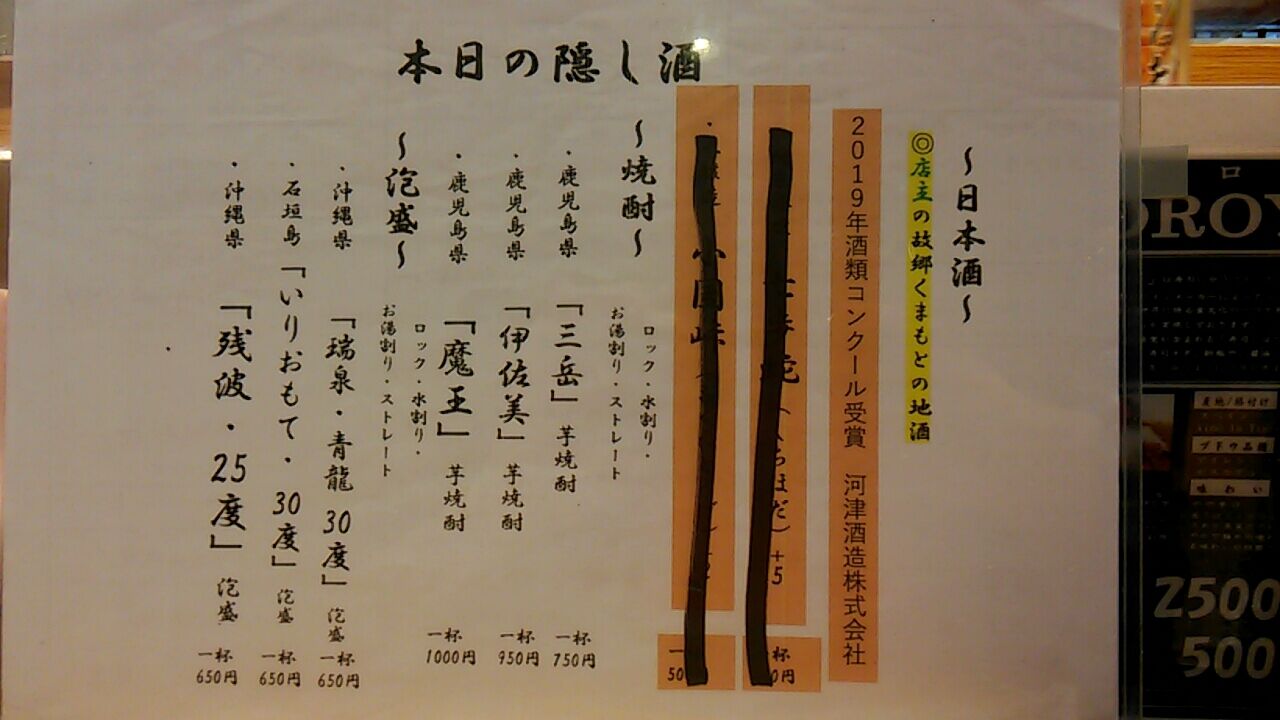 本日の隠し酒
~日本酒~
◎店主の故郷くまもとの地酒
2019年酒類コンクール受賞 河津酒造株式会社
+5
~焼酎~
ロック・水割り・
お湯割り・ストレート
・鹿児島県 「三岳」 芋焼酎 一杯 750円
・鹿児島県 「伊佐美」 芋焼酎 一杯 950円
・鹿児島県 「魔王」 芋焼酎 一杯 1000円
~泡盛~
ロック・水割り・
お湯割り・ストレート
・沖縄県 「瑞泉・青龍 30度」 泡盛 一杯 650円
・石垣島 「いりおもて・30度」 泡盛 一杯 650円
・沖縄県 「残波・25度」 泡盛 一杯 650円
産地/格付け
ブドウ品種
味わい
2500
500